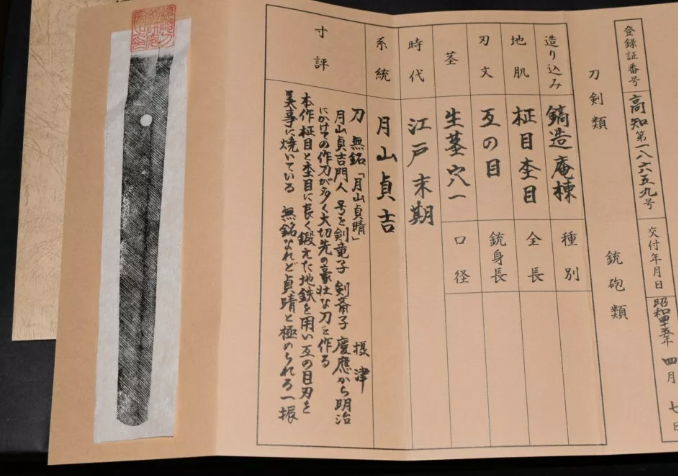 登録証番号 高知第一八六五九号 交付年月日 昭和四十五年 四月 七日
刀剣類 銃砲類
造り込み 鎬造庵棟 種別
地肌 柾目杢目 全長
刃文 互の目 銃身長
茎 生茎穴一 口径
時代 江戸末期
系統 月山貞吉
寸評
刀 無銘「月山貞晴」 摂津
月山貞吉門人 号を剣竜子 剣斎子 慶應から明治
にかけての作刀が多く大切先の豪壮な刀を作る
本作柾目と杢目に良く鍛えた地鉄を用い互の目刃を
美事に焼いている 無銘なれど貞晴と極められる一振